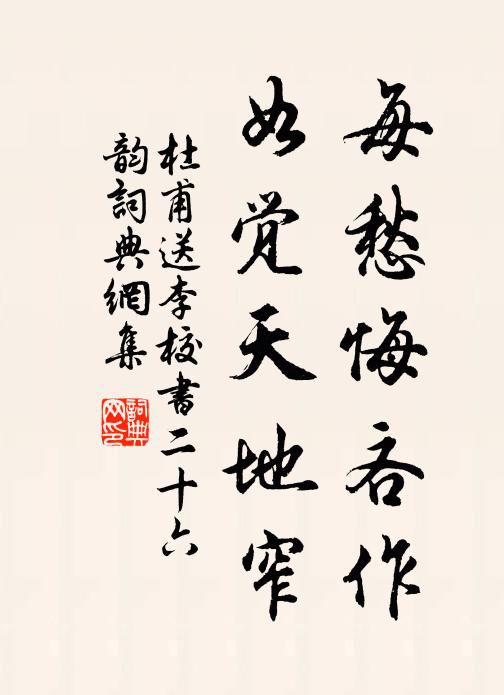 每愁悔吝作
如觉天地窄
杜甫送李校書二十六
韵詞典網集
詞典
网印